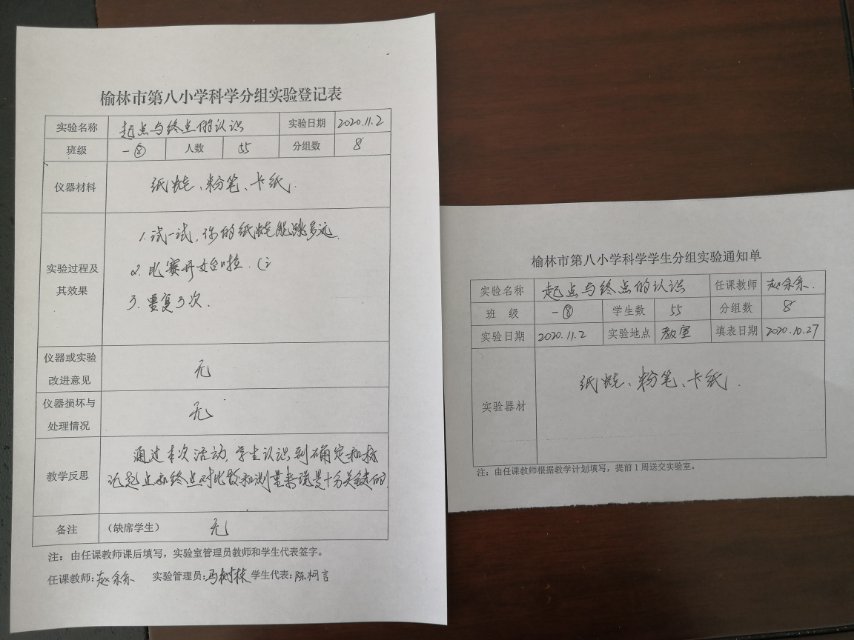 榆林市第八小学科学分组实验登记表
实验名称 起点与终点的认识 实验日期 2020.11.2
班级 一⑧ 人数 55 分组数 8
仪器材料 纸蛙、粉笔、卡纸.
实验过程及其效果
1.试一试,你的纸蛙能跳多远.
2.比赛开始啦.
3.重复3次.
仪器或实验改进意见 无
仪器损坏与处理情况 无
教学反思 通过本次活动,学生认识到确定和标
记起点和终点对比较和测量来说是十分关键的
备注 (缺席学生) 无
注:由任课教师课后填写,实验室管理员教师和学生代表签字。
任课教师: 实验管理员: 学生代表:
榆林市第八小学科学学生分组实验通知单
实验名称 起点与终点的认识 任课教师
班 级 一⑧ 学生数 55 分组数 8
实验日期 2020.11.2 实验地点 教室 填表日期 2020.10.27
实验器材 纸蛙、粉笔、卡纸.
注:由任课教师根据教学计划填写,提前1周送交实验室。